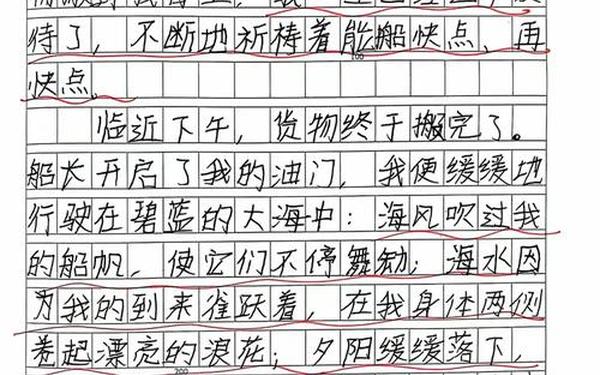 待了，不断地祈祷着能船快点、再
100
快点。
临近下午，货物终于搬完了。
船长开启了我的油门，我便缓缓地
行驶在碧蓝的大海中：海风吹过我
的船帆，使它们不停舞动；海水因
为我的到来雀跃着，在我身体两侧
卷起漂亮的浪花；夕阳缓缓落下，
200